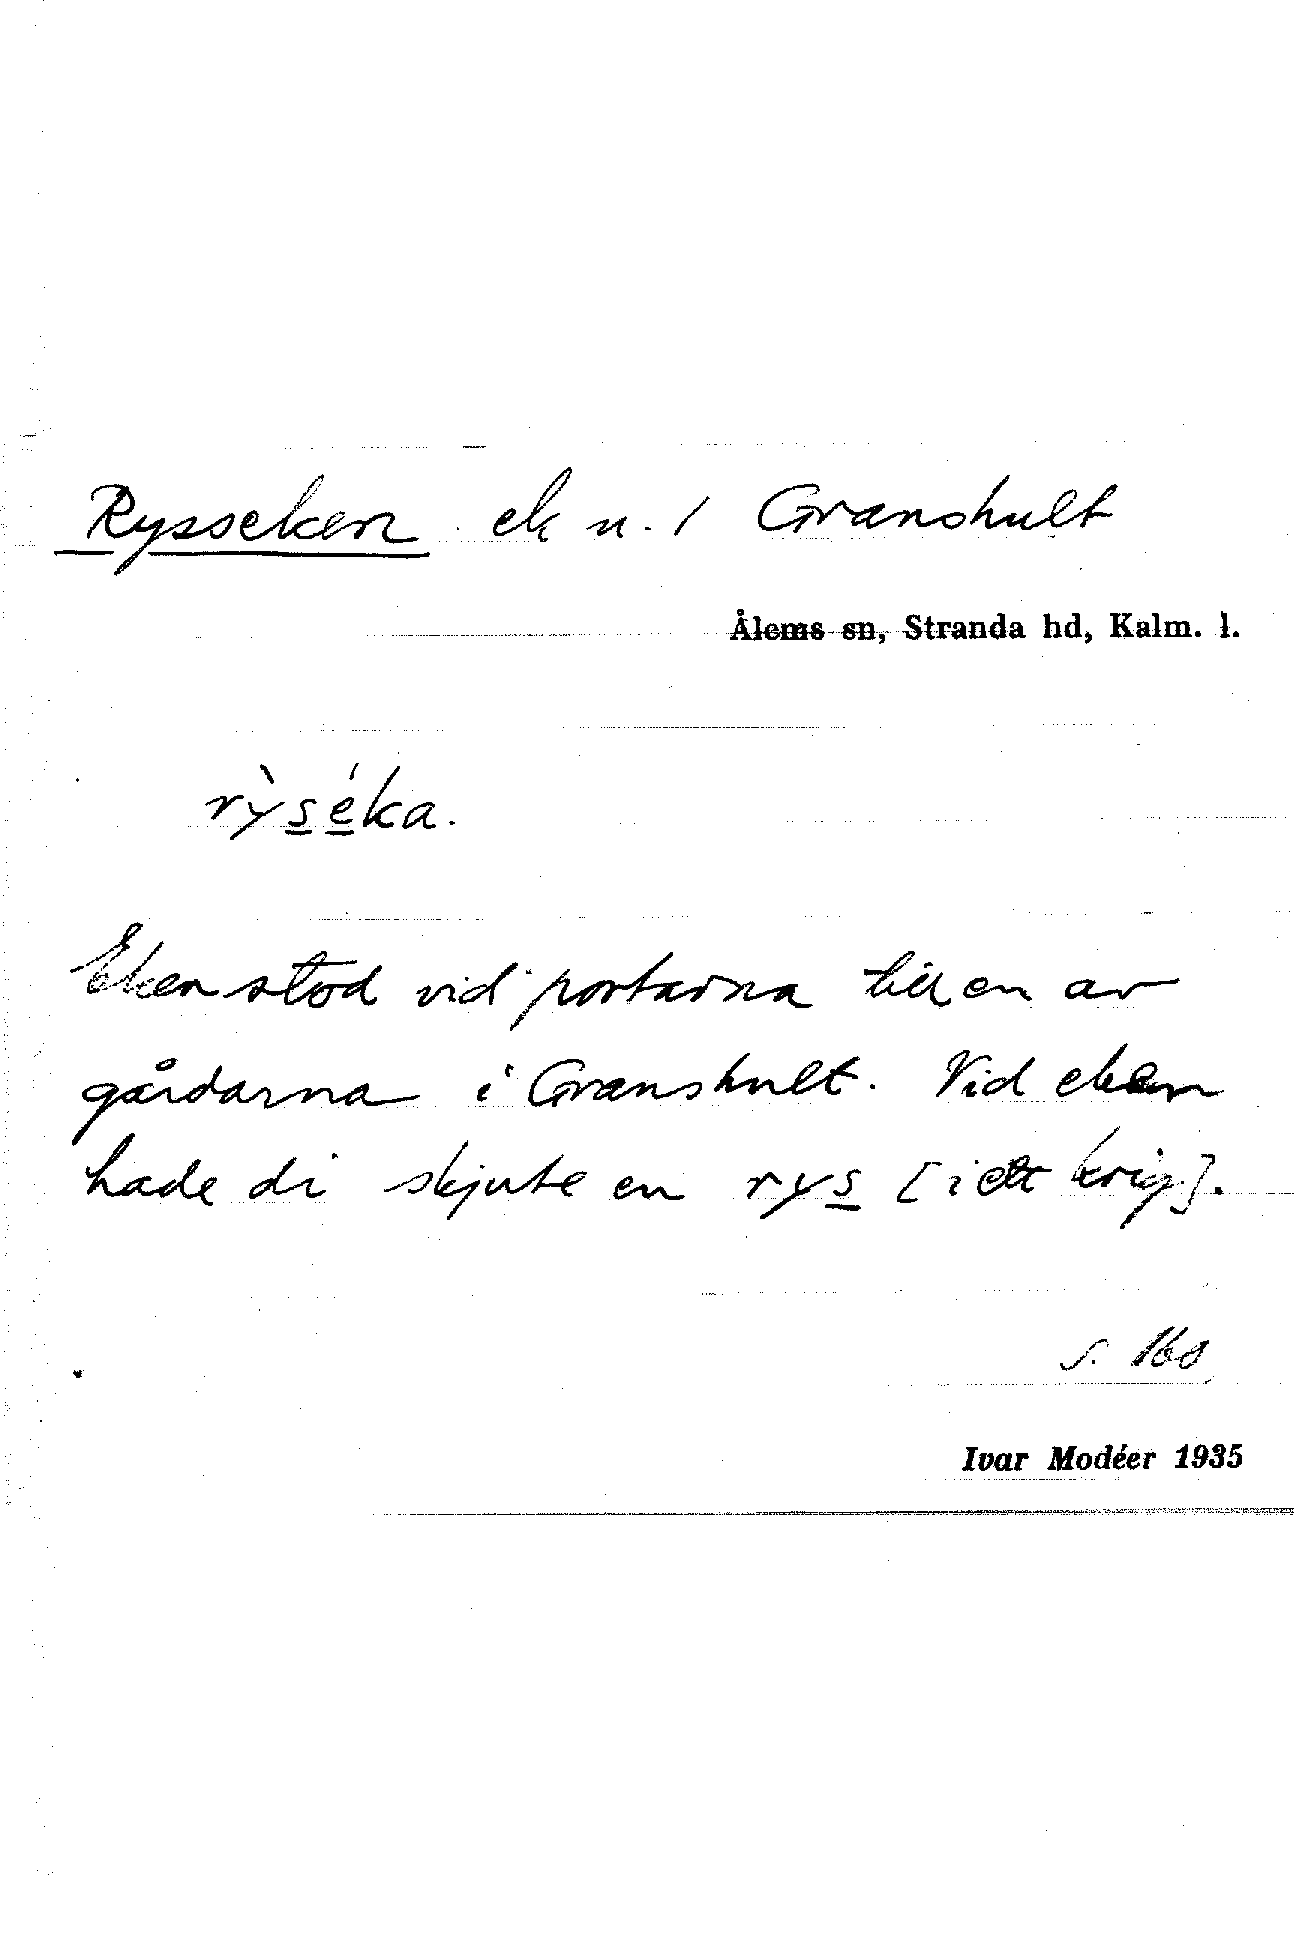 Rysseken ek u. / Granshult
Ålems sn, Stranda hd, Kalm. l.
rỳséka.
Eken stod vid portarna till en av
gårdarna i Granshult. Vid eken
hade di skjute en rys [i ett krig].
s. 168
Ivar Modéer 1935